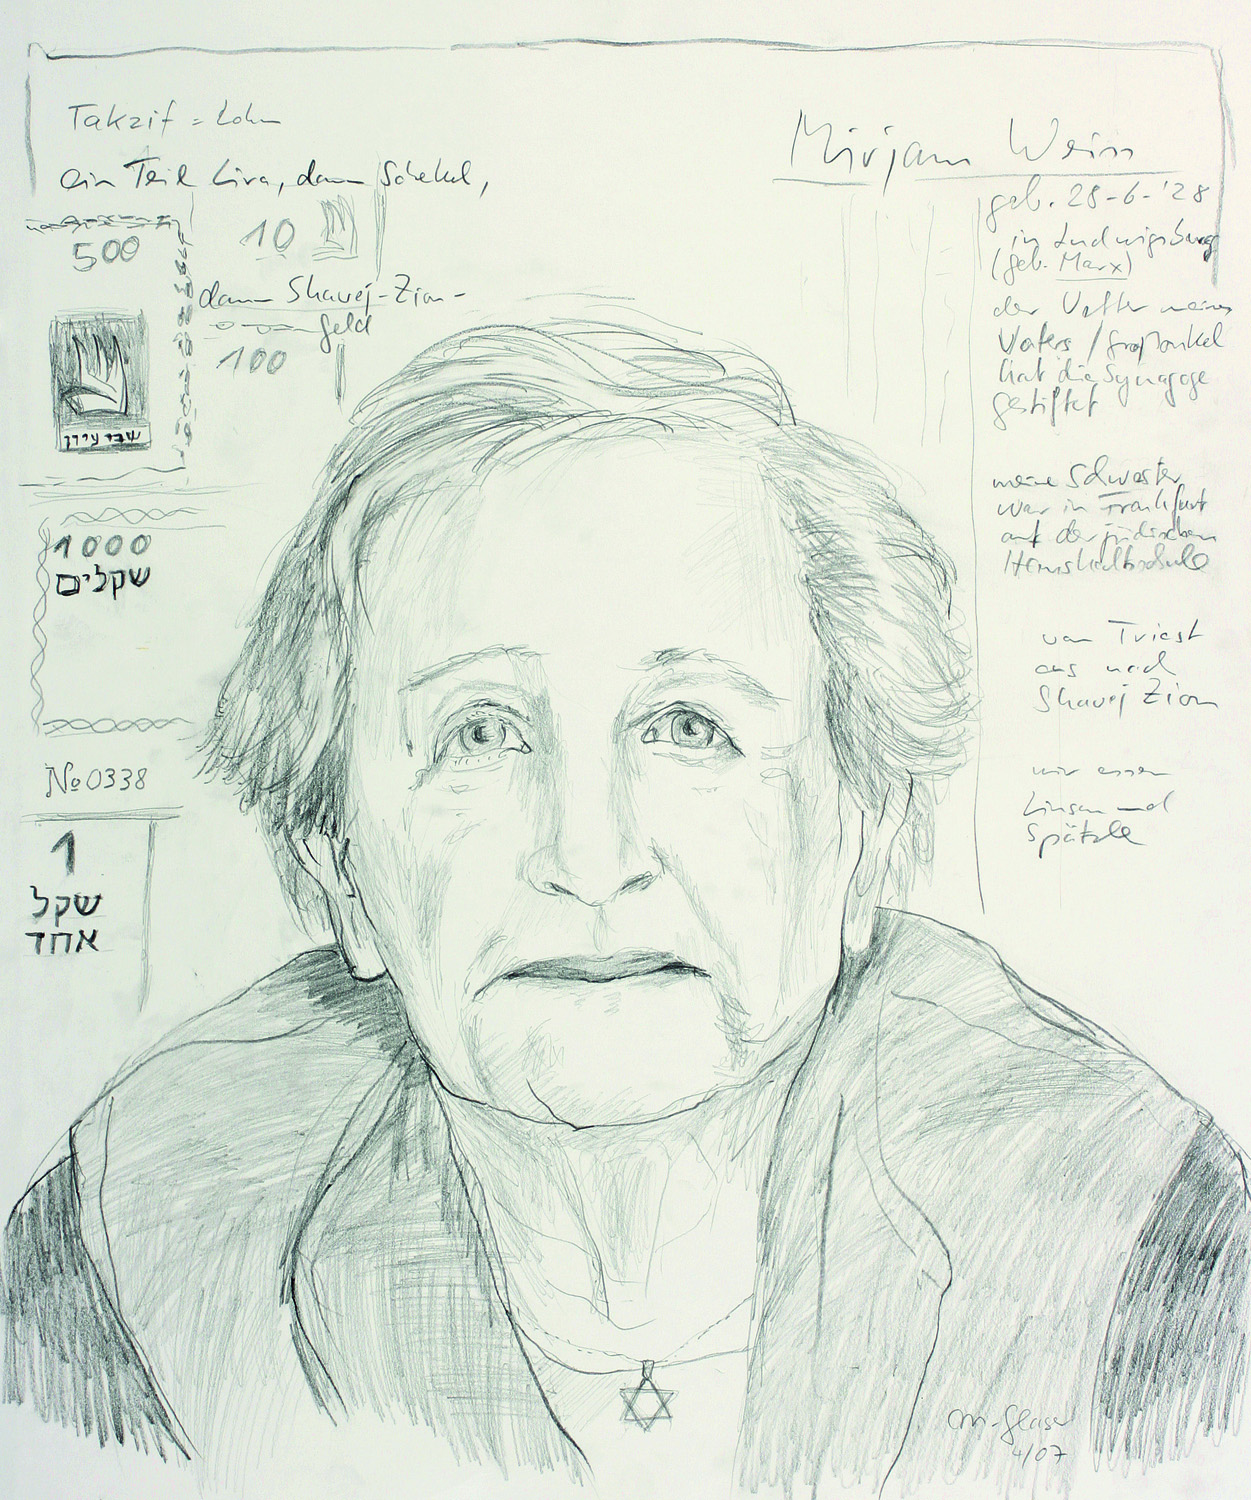 Takzif = Lohn
ein Teil Lira, dann Schekel,
500
10
dann Shavej-Zion-
geld
100
שבי ציון
1000
שקלים
No 0338
1
שקל
אחד
Mirjam Wein
geb. 28-6-'28
in Ludwigsburg
(geb. Marx)
der Vetter meines
Vaters / Großonkel
hat die Synagoge
gestiftet
meine Schwester
war in Frankfurt
auf der jüdischen
Haushaltsschule
von Triest
aus nach
Shavej Zion
wir essen
Linsen und
Spätzle
M. Glaser
4/07